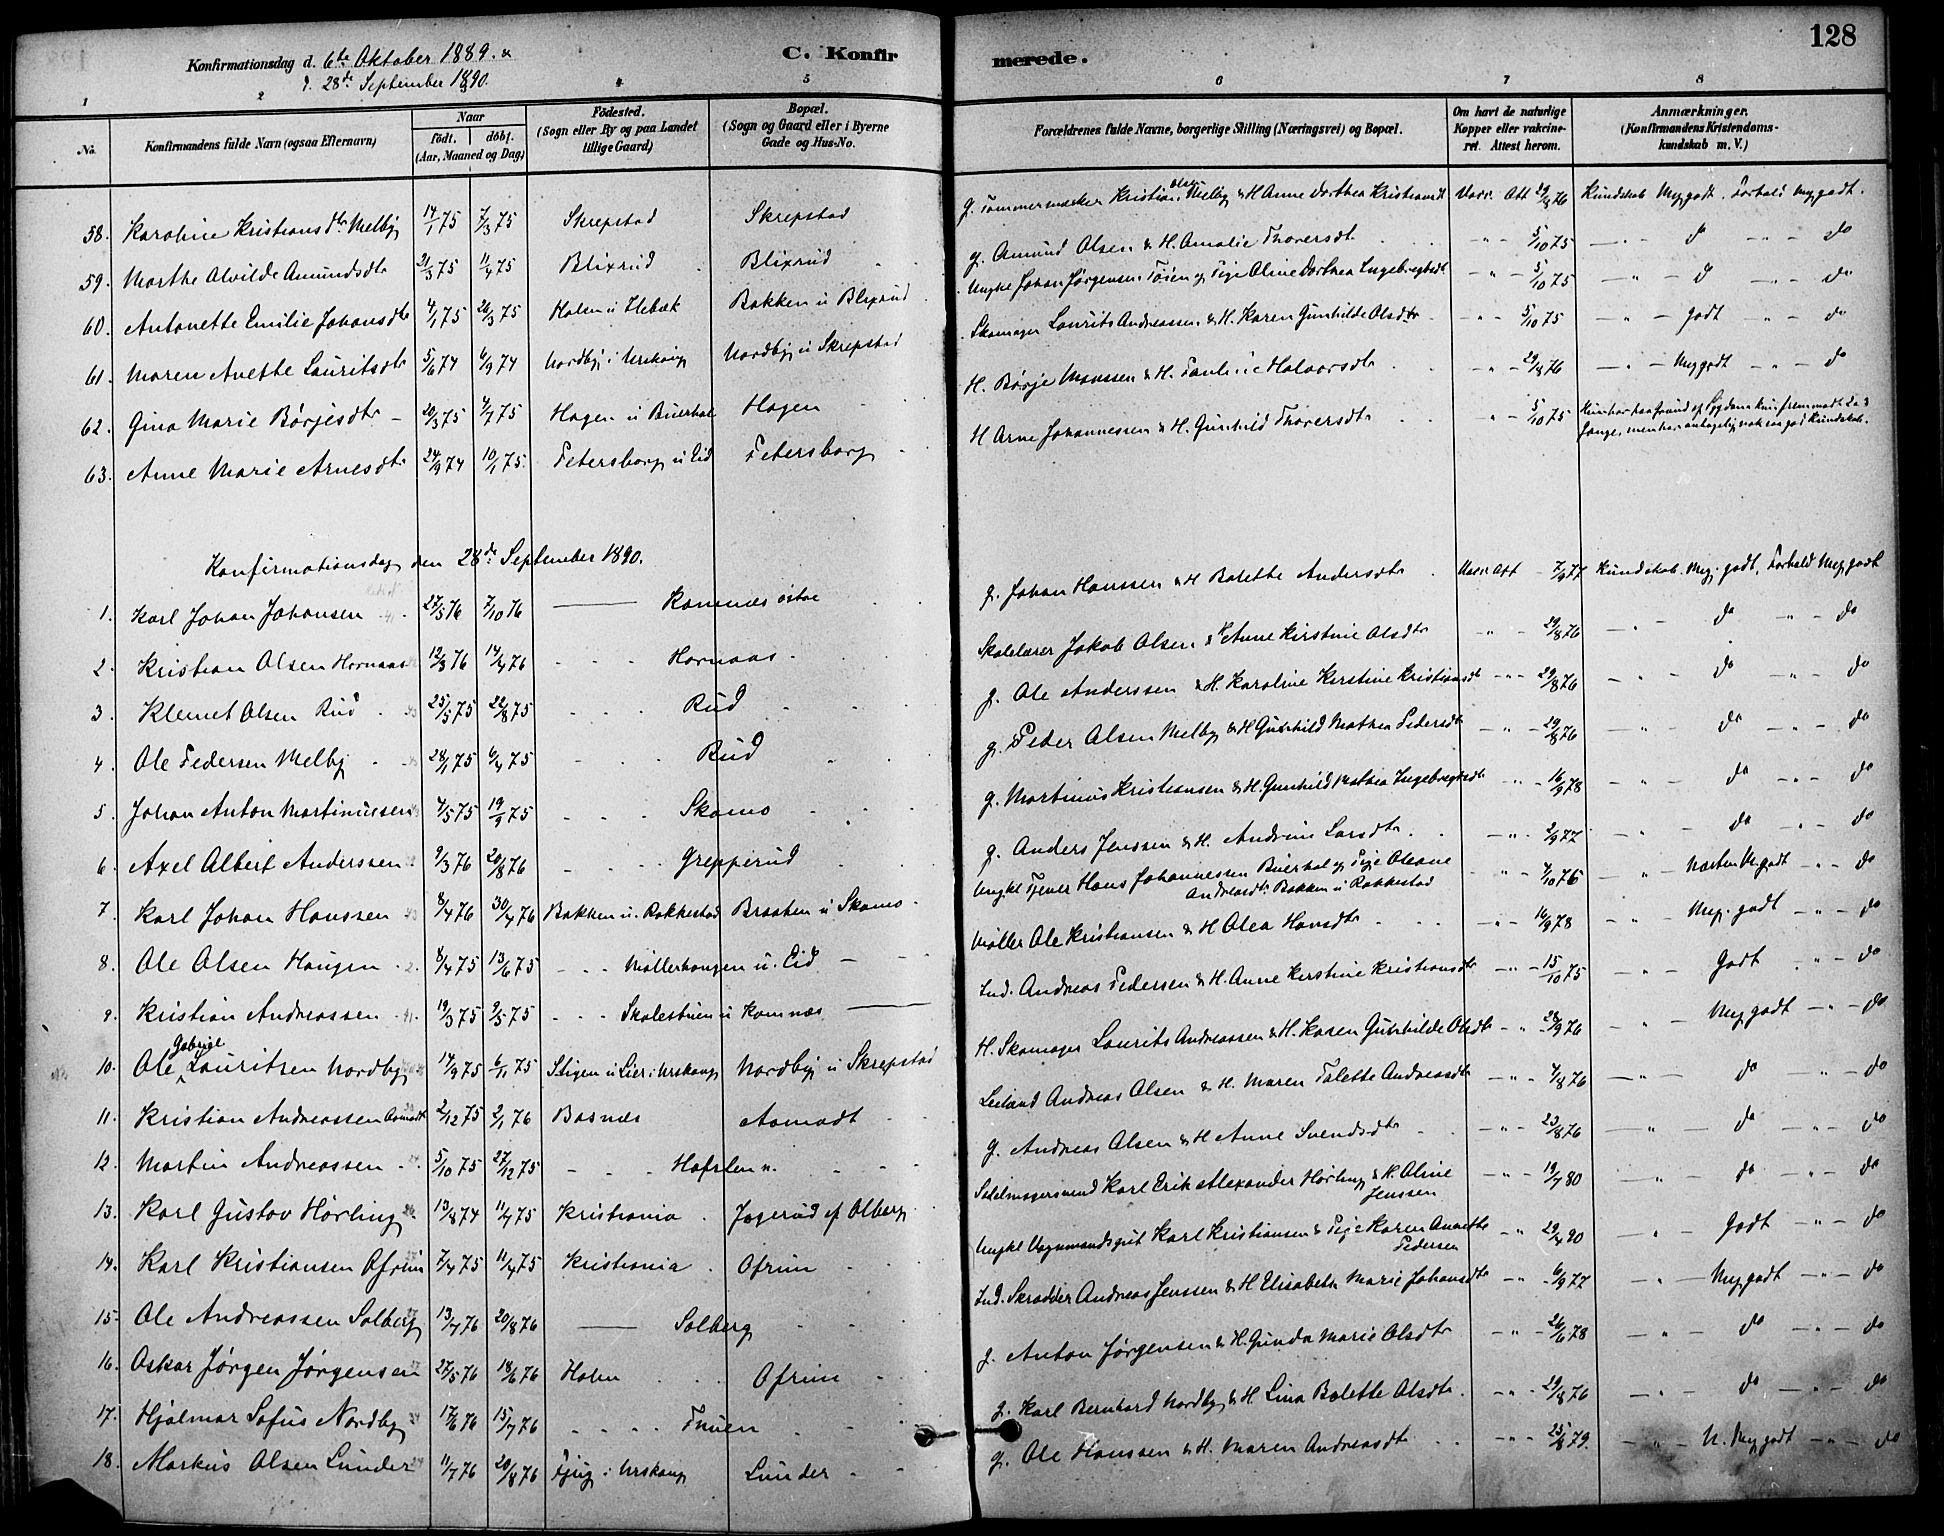 128
Konfirmationsdag d. 6te Oktober 1889. &
d. 28de September 1890.
C. Konfirmerede.
1 2 4 5 6 7 8
No.
Konfirmandens fulde Navn (ogsaa Efternavn)
Naar
födt. döbt.
(Aar, Maaned og Dag)
Födested.
(Sogn eller By og paa Landet tillige Gaard)
Bopæl.
(Sogn og Gaard eller i Byerne Gade og Hus-No.
Forældrenes fulde Navne, borgerlige Stilling (Næringsvei) og Bopæl.
Om havt de naturlige Kopper eller vakcineret. Attest herom.
Anmærkninger.
(Konfirmandens Kristendomskundskab m. V.)
58. Karoline Kristiansdtr Melby 14/1 75 7/3 75 Skrepstad Skrepstad g. Tømmermærker Kristian Olsen Melby & H. Anne Dorthea Kristiansdt Vacc. Att 29/8 76 Kundskab Meg godt. Forhold Meg godt.
59. Marthe Alvilde Amundsdtr 21/3 75 11/4 75 Blixrud Blixrud g. Amund Olsen & H. Amalie Thoversdtr - " - 5/10 75 - " - do - " - do
60. Antonette Emilie Johansdtr 4/1 75 26/3 75 Holen u Ilebæk Bakken u Blixrud Ungke Johan Jørgensen Tøien og Pige Oline Dorthea Ingebregtsdtr - " - 5/10 75 - " - do - " - do
61. Maren Anette Lauritsdtr 5/6 74 6/9 74 Nordby i Urskoug Nordby u Skrepstad Skomager Laurits Andreassen & H. Karen Gunhilde Olsdtr - " - 5/10 75 - " - godt - " - do
62. Gina Marie Børjesdtr - 20/3 75 4/7 75 Hagen u Buerhol Hagen H. Børje Monssen & H. Pauline Halvorsdtr - " - 29/8 76 - " - Meg godt - " - do
63. Anne Marie Arnesdtr 24/9 74 10/1 75 Petersborg u Eid Petersborg H Arne Johannessen & H. Gunhild Thoversdtr " - 5/10 75 Hun har paa Grund af Sygdom kun fremmødt
Gange, men har antagelig nok saa god Kundskab.
Konfirmationsdag den 28de September 1890.
1. Karl Johan Johansen 27/5 76 7/10 76 Komnæs østre g. Johan Hanssen & H Bolette Andersdtr Vacc. Att - 7/9 77 Kundskab. Meg. godt, Forhold Meg godt
2. Kristian Olsen Hornaas 12/3 76 14/4 76 - - - Hornaas Skolelærer Jakob Olsen & H Anne Kirstine Olsdtr - " - 29/8 76 - " - do " - do
3. Klemet Olsen Rud 25/5 75 22/8 75 - - - Rud g. Ole Anderssen & H. Karoline Kirstine Kristiansdtr - " - 29/8 76 - " - do - " - do
4. Ole Pedersen Melby 28/1 75 6/4 75 - - - Rud g. Peder Olsen Melby & H Gunhild Mathea Pedersdtr - " - 29/8 76 - " - do - " - do
5. Johan Anton Martinussen 4/5 75 19/9 75 - - - Skamo g. Martinus Kristiansen & H. Gunhild Mathea Ingebregtsdtr " - 16/9 78 " - do - " - do
6. Axel Albert Anderssen 9/3 76 20/8 76 - - - Grepperud g. Anders Jenssen & H. Andrine Larsdtr - " - 2/9 77 - " - do - " - do
7. Karl Johan Hanssen 8/4 76 30/4 76 Bakken u. Rakkestad Braaten u Skamo Ungkl Tjener Hans Johannessen Buerhol og Pige Oleane
Andreasdtr Bakken u Rakkestad - " - 7/10 76 " - Næsten M. godt - " - do
8. Ole Olsen Haugen 8/4 75 13/6 75 - - Møllerhaugen u. Eid - Møller Ole Kristiansen & H Olea Hansdtr - " - 16/9 78 - " - Meg. godt - " - do
9. Kristian Andreassen 19/3 75 2/5 75 - - - Skolestuen u Komnæs Ind. Andreas Pedersen & H. Anne Kirstine Kristiansdtr - " - 15/10 75 " - Godt " - do
10. Ole Gabriel Lauritsen Nordby 14/9 75 6/11 75 Stigen u Lier i Urskoug Nordby u Skrepstad H. Skomager Laurits Andreassen & H. Karen Gunhilde Olsdtr - " - 28/9 76 " - Meg godt - " - do
11. Kristian Andreassen Aamodt 2/12 75 2/1 76 Basnæs Aamodt Leiland Andreas Olsen & H. Maren Talette Andreasdtr - " - 7/8 76 - " - do - " - do
12. Martin Andreassen 5/10 75 27/12 75 - - Hafsten n. g. Andreas Olsen & H Anne Svendsdtr - " - 23/8 76 - " - do - " - do
13. Karl Gustav Hørling 13/8 74 11/4 75 Kristiania Jogerud af Olberg Sadelmagersvend Karl Erik Alexander Hørling & H. Oline
Jenssen - " - 19/7 80 - " - do - " - do
14. Karl Kristiansen Ofrim 7/4 75 11/4 75 Kristiania Ofrim Ungkl Vognmandsgut Karl Kristiansen & Pige Karen Annethe
Pedersen - " - 29/4 90 - " - Godt - " - do
15. Ole Andreassen Solberg 13/7 76 20/8 76 Solberg Ind. Skrædder Andreas Jenssen & H Elisabeth Marie Johansdtr - " - 6/9 77 - " - Meg godt - " - do
16. Oskar Jørgen Jørgensen 27/5 76 18/6 76 Holen Ofrim g. Anton Jørgensen & H. Gunda Marie Olsdtr - " - 26/6 78 - " - do - " - do
17. Hjalmar Sofus Nordby 17/6 76 15/7 76 - - - Truen g. Karl Bernhard Nordby & H. Lina Bolette Olsdtr - " - 29/8 76 - " - do - " - do
18. Markus Olsen Lunder 11/7 76 20/8 76 i Urskoug Lunder g. Ole Hanssen & H. Maren Andreasdtr - " - 25/8 79. - " - N. Meg godt - " - do